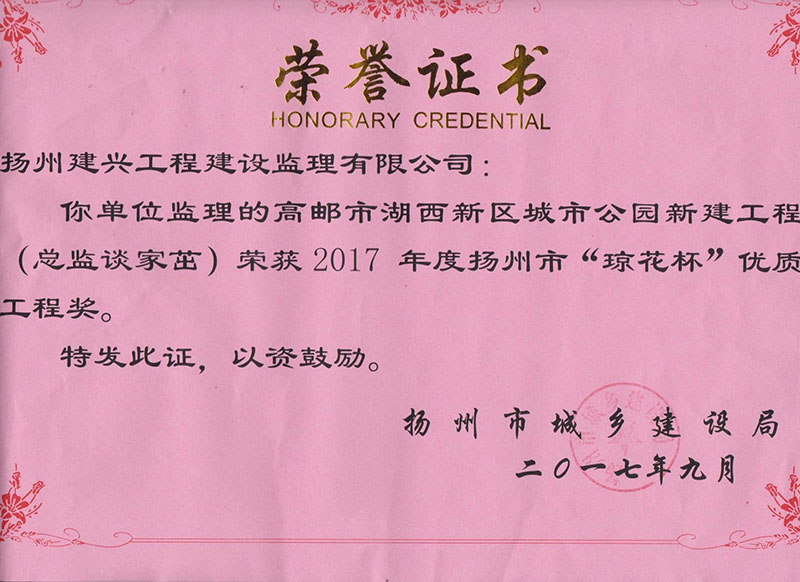 荣誉证书
HONORARY CREDENTIAL
扬州建兴工程建设监理有限公司：
你单位监理的高邮市湖西新区城市公园新建工程
（总监谈家茁）荣获2017年度扬州市“琼花杯”优质
工程奖。
特发此证，以资鼓励。
扬州市城乡建设局
二〇一七年九月